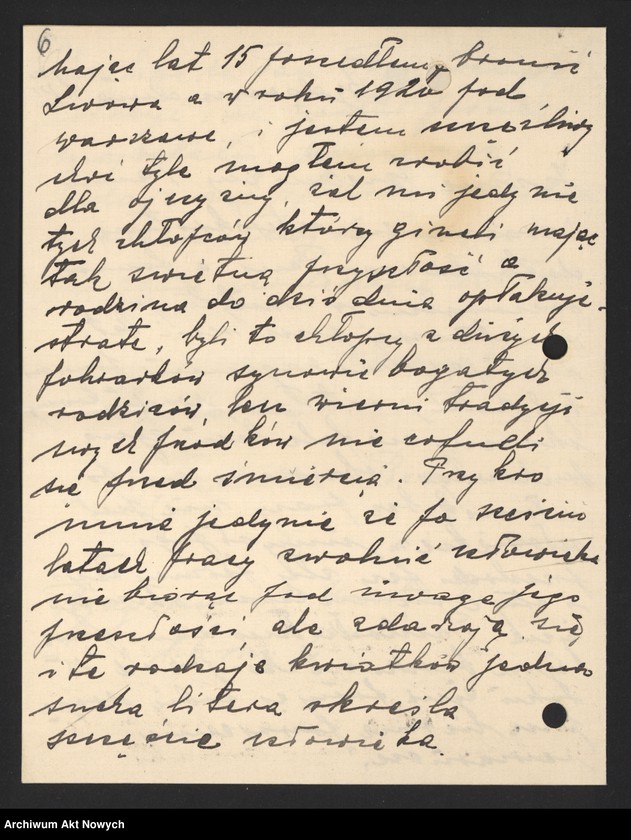 6
Mając lat 15 poszedłem bronić
Lwowa a w roku 1920 pod
warszawe, i jestem szczęśliwy
choć tyle mogłem zrobić
dla ojczyzny, żal mi jedynie
tych chłopców którzy gineli mając
tak swietną przyszłość a
rodzina do dziś dnia opłakuje
strate, byli to chłopcy z dużych
folwarków synowie bogatych
rodziców, lecz wierni tradycji
swych przodków nie cofneli
się przed śmiercią. Przykro
mnie jedynie że po sześciu
latach pracy zwolnić człowieka
nie biorąc pod uwagę jego
przeszłości ale zdarzają się
i te rodzaje kwiatków jedna
sucha litera skreśla
szczęście człowieka
Archiwum Akt Nowych